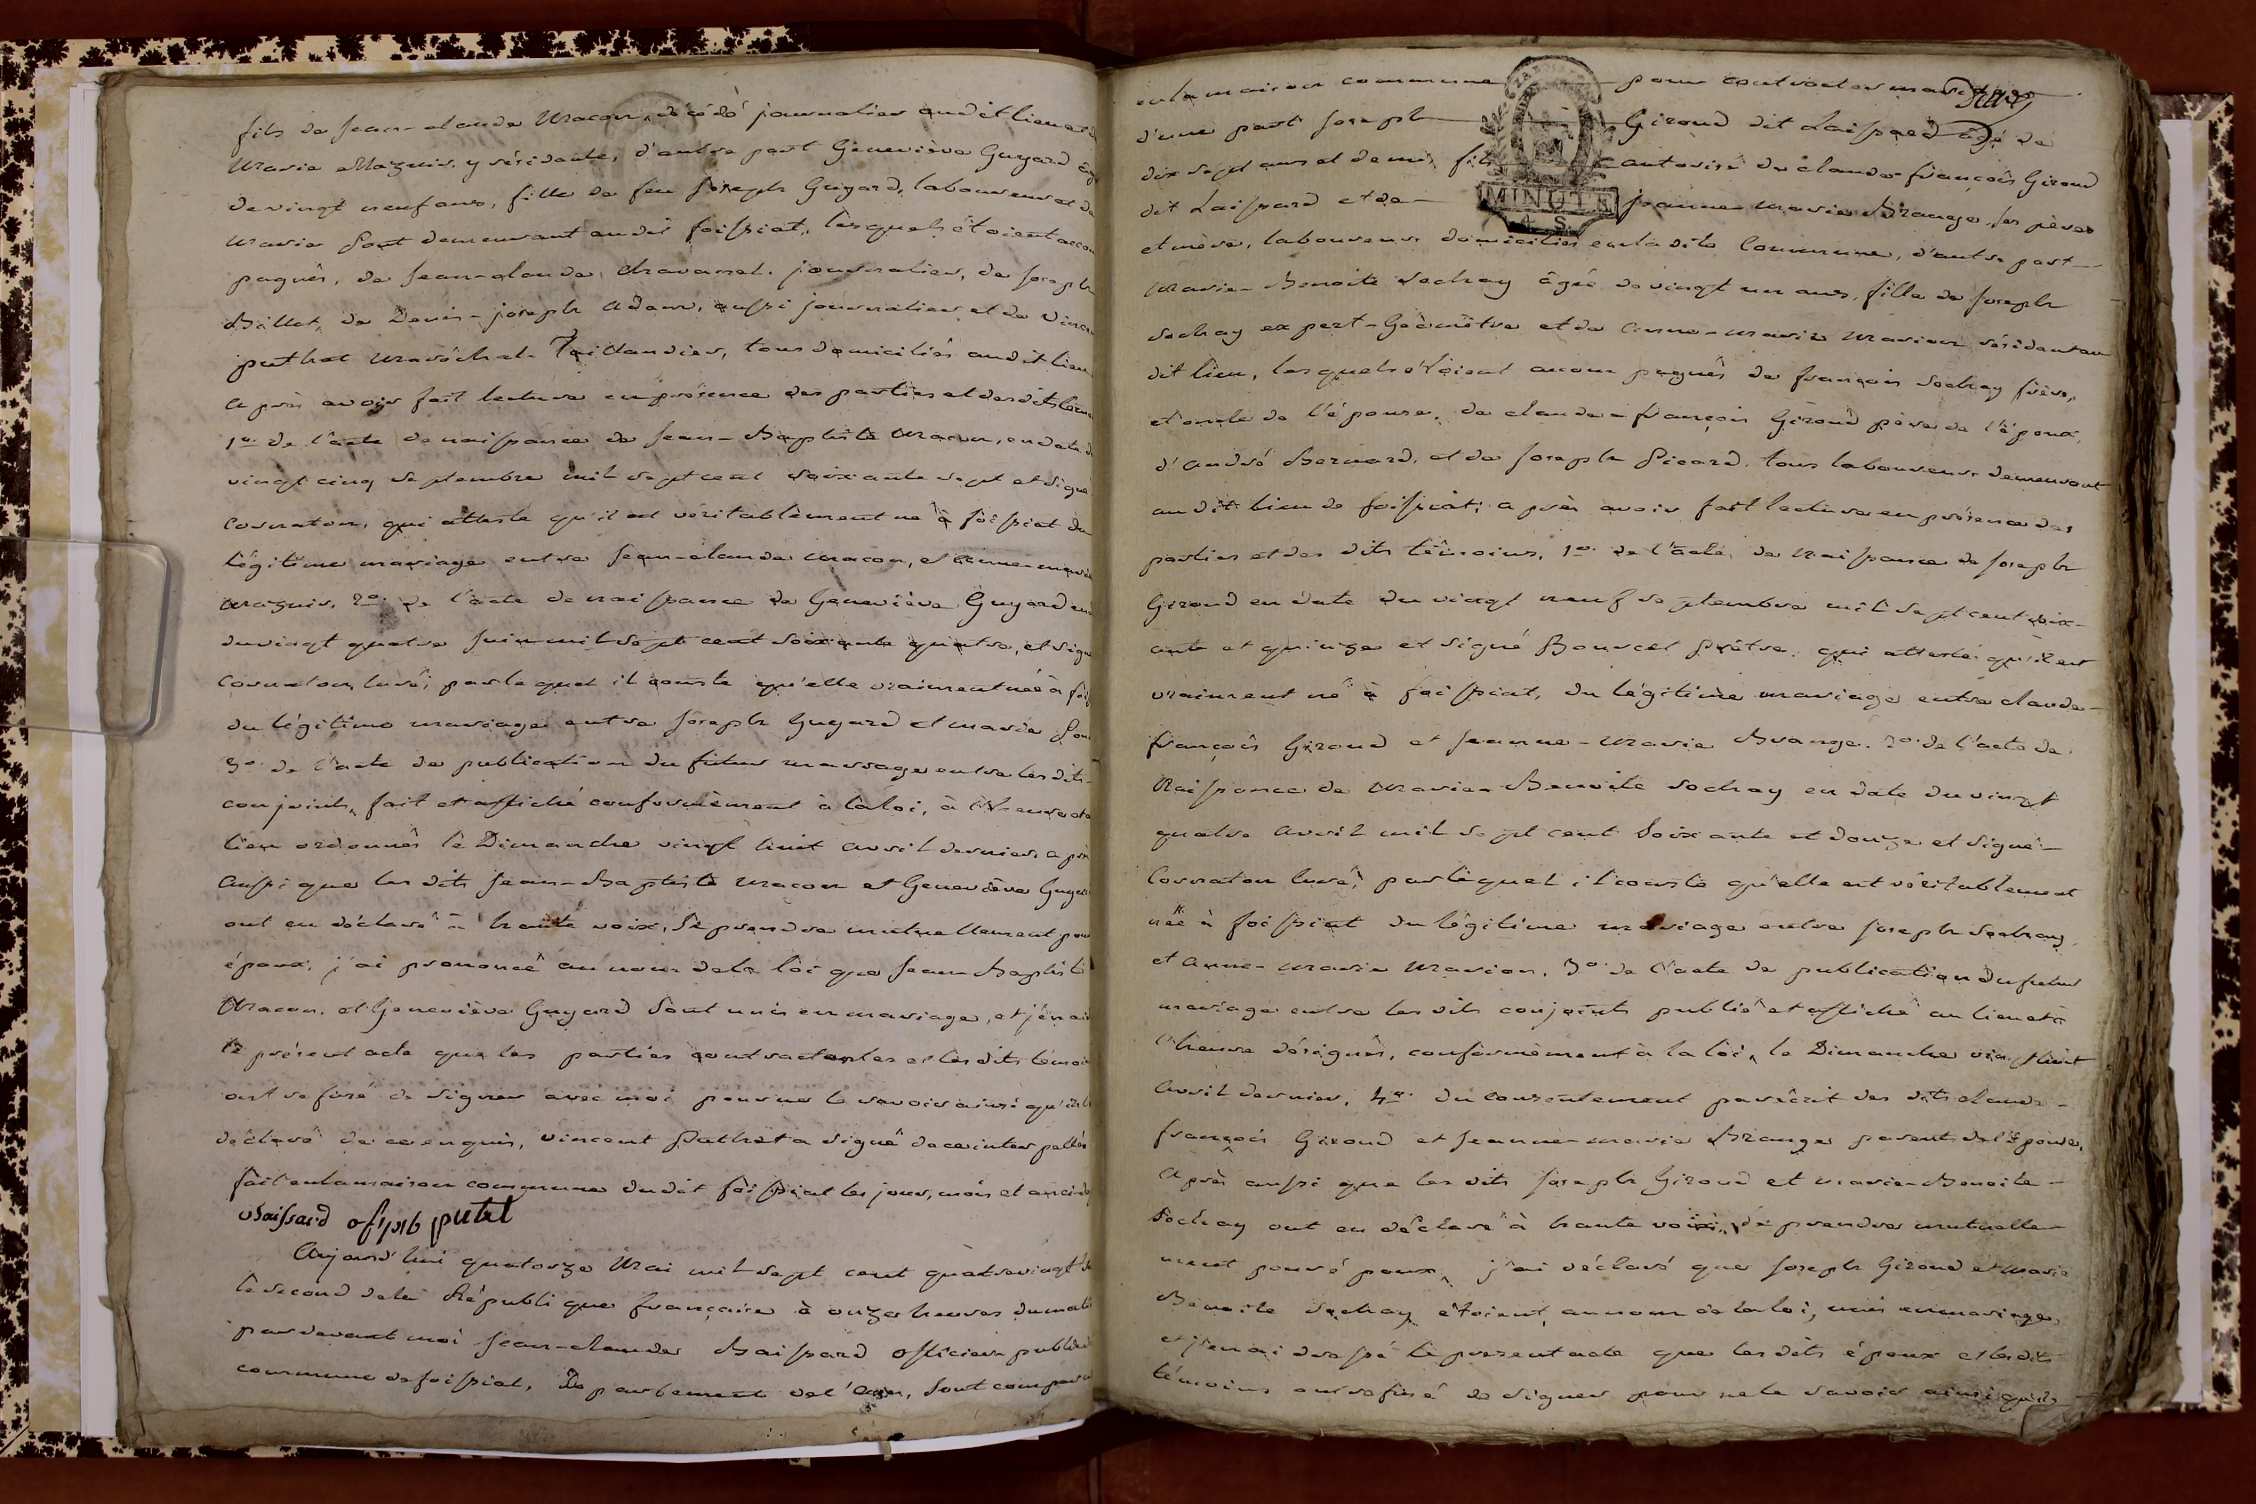 fils de Jean-claude Macon, décédé journalier audit lieu et de
Marie Mazuir y résidante, d'autre part Geneviève Guyard âgée
de vingt neuf ans, fille de feu Joseph Guyard, laboureur et de
Marie Pont demeurant audit foissiat, lesquels étoient accom
pagnés, de Jean-claude Chavanel journalier, de Joseph
Billet, de Denis-joseph Adam, aussi journalier et de Vincent
puthet Maréchal-Taillandier, tous domiciliés audit lieu
après avoir fait lecture en présence des parties et desdits témoins
1º. de l'acte de naissance de Jean-Baptiste Macon, en date du
vingt cinq septembre mil sept cent soixante sept et signé
Cornaton, qui atteste qu'il est véritablement né à foissiat du
légitime mariage entre Jean-claude Macon, et Anne-marie
Mazuir, 2º. de l'acte de naissance de Geneviève Guyard en
du vingt quatre Juin mil sept cent soixante quatre, et signé
Cornaton curé, par lequel il conste qu'elle vraiment née à fois
du légitime mariage entre Joseph Guyard et Marie Pon
3º. de l'acte de publication du futur mariage entre lesdits
conjoints, fait et affiché conformément à la loi, à l'heure et
lieu ordonnés le Dimanche vingt huit avril dernier, après
aussi que les dits Jean-Baptiste Macon et Geneviève Guyard
ont eu déclaré à haute voix, se prendre mutuellement pour
époux, j'ai prononcé au nom de la loi que Jean-Baptiste
Macon, et Geneviève Guyard sont unis en mariage, et j'en ai
le présent acte que les parties contractantes et lesdits témoins
ont refusé de signer avec moi pour ne le savoir ainsi qu'ils
déclaré de ce enquis, vincent Puthet a signé de ce interpellé
fait en la maison commune dudit foissiat les jour, mois et an ci de
Baissard offi. pub. putet
Aujourd'hui quatorze Mai mil sept cent quatrevingt
le second de la République française à onze heures du matin
par devant moi Jean-claude Baissard officier public
commune de foissiat, Département de l'Ain, sont comparu
en la maison commune pour contracter mariage
d'une part Joseph Giroud dit Laissard âgé de
dix sept ans et demi, fils autorisé de claude françois Giroud
dit Laissard et de Jeanne Marie Brange, ses père
et mère, laboureurs domiciliés en la dite Commune, d'autre part
Marie-Benoite Sochay âgée de vingt un ans, fille de Joseph
Sochay expert-Géomètre et de Anne-marie Marion résidants au
dit lieu, lesquels étoient accompagnés de françois Sochay frère,
et oncle de l'épouse, de claude-françois Giroud père de l'époux,
d'André Bernard, et de Joseph Picard, tous laboureurs demeurant
audit lieu de foissiat; après avoir fait lecture en présence des
parties et des dits témoins, 1º. de l'acte de Naissance de Joseph
Giroud en date du vingt neuf septembre mil sept cent soix-
ante et quinze et signé Bouvet Prêtre, qui atteste qu'il est
vraiment né à foissiat, du légitime mariage entre claude-
françois Giroud et Jeanne-Marie Brange. 2º. de l'acte de
Naissance de Marie-Benoite Sochay en date du vingt
quatre avril mil sept cent Soixante et douze et signé-
Cornaton curé; par lequel il conste qu'elle est véritablement
née à foissiat du légitime mariage entre Joseph Sochay,
et Anne-Marie Marion, 3º. de l'acte de publication du futur
mariage entre les dits conjoints publié et affiché au lieu et à
l'heure désignés, conformément à la loi, le Dimanche vingt huit
avril dernier, 4º. du consentement par écrit des dits claude-
françois Giroud et Jeanne-marie Brange parents de l'épouse,
après aussi que les dits Joseph Giroud et Marie-Benoite-
Sochay ont eu déclaré à haute voix, se prendre mutuelle-
ment pour époux, j'ai déclaré que Joseph Giroud et Marie
Benoite Sochay étoient, au nom de la loi, unis en mariage,
et j'en ai dressé le present acte que les dits époux et lesdits
témoins ont refusé de signer pour ne le savoir ainsi qu'ils
MINUTE
4. S.